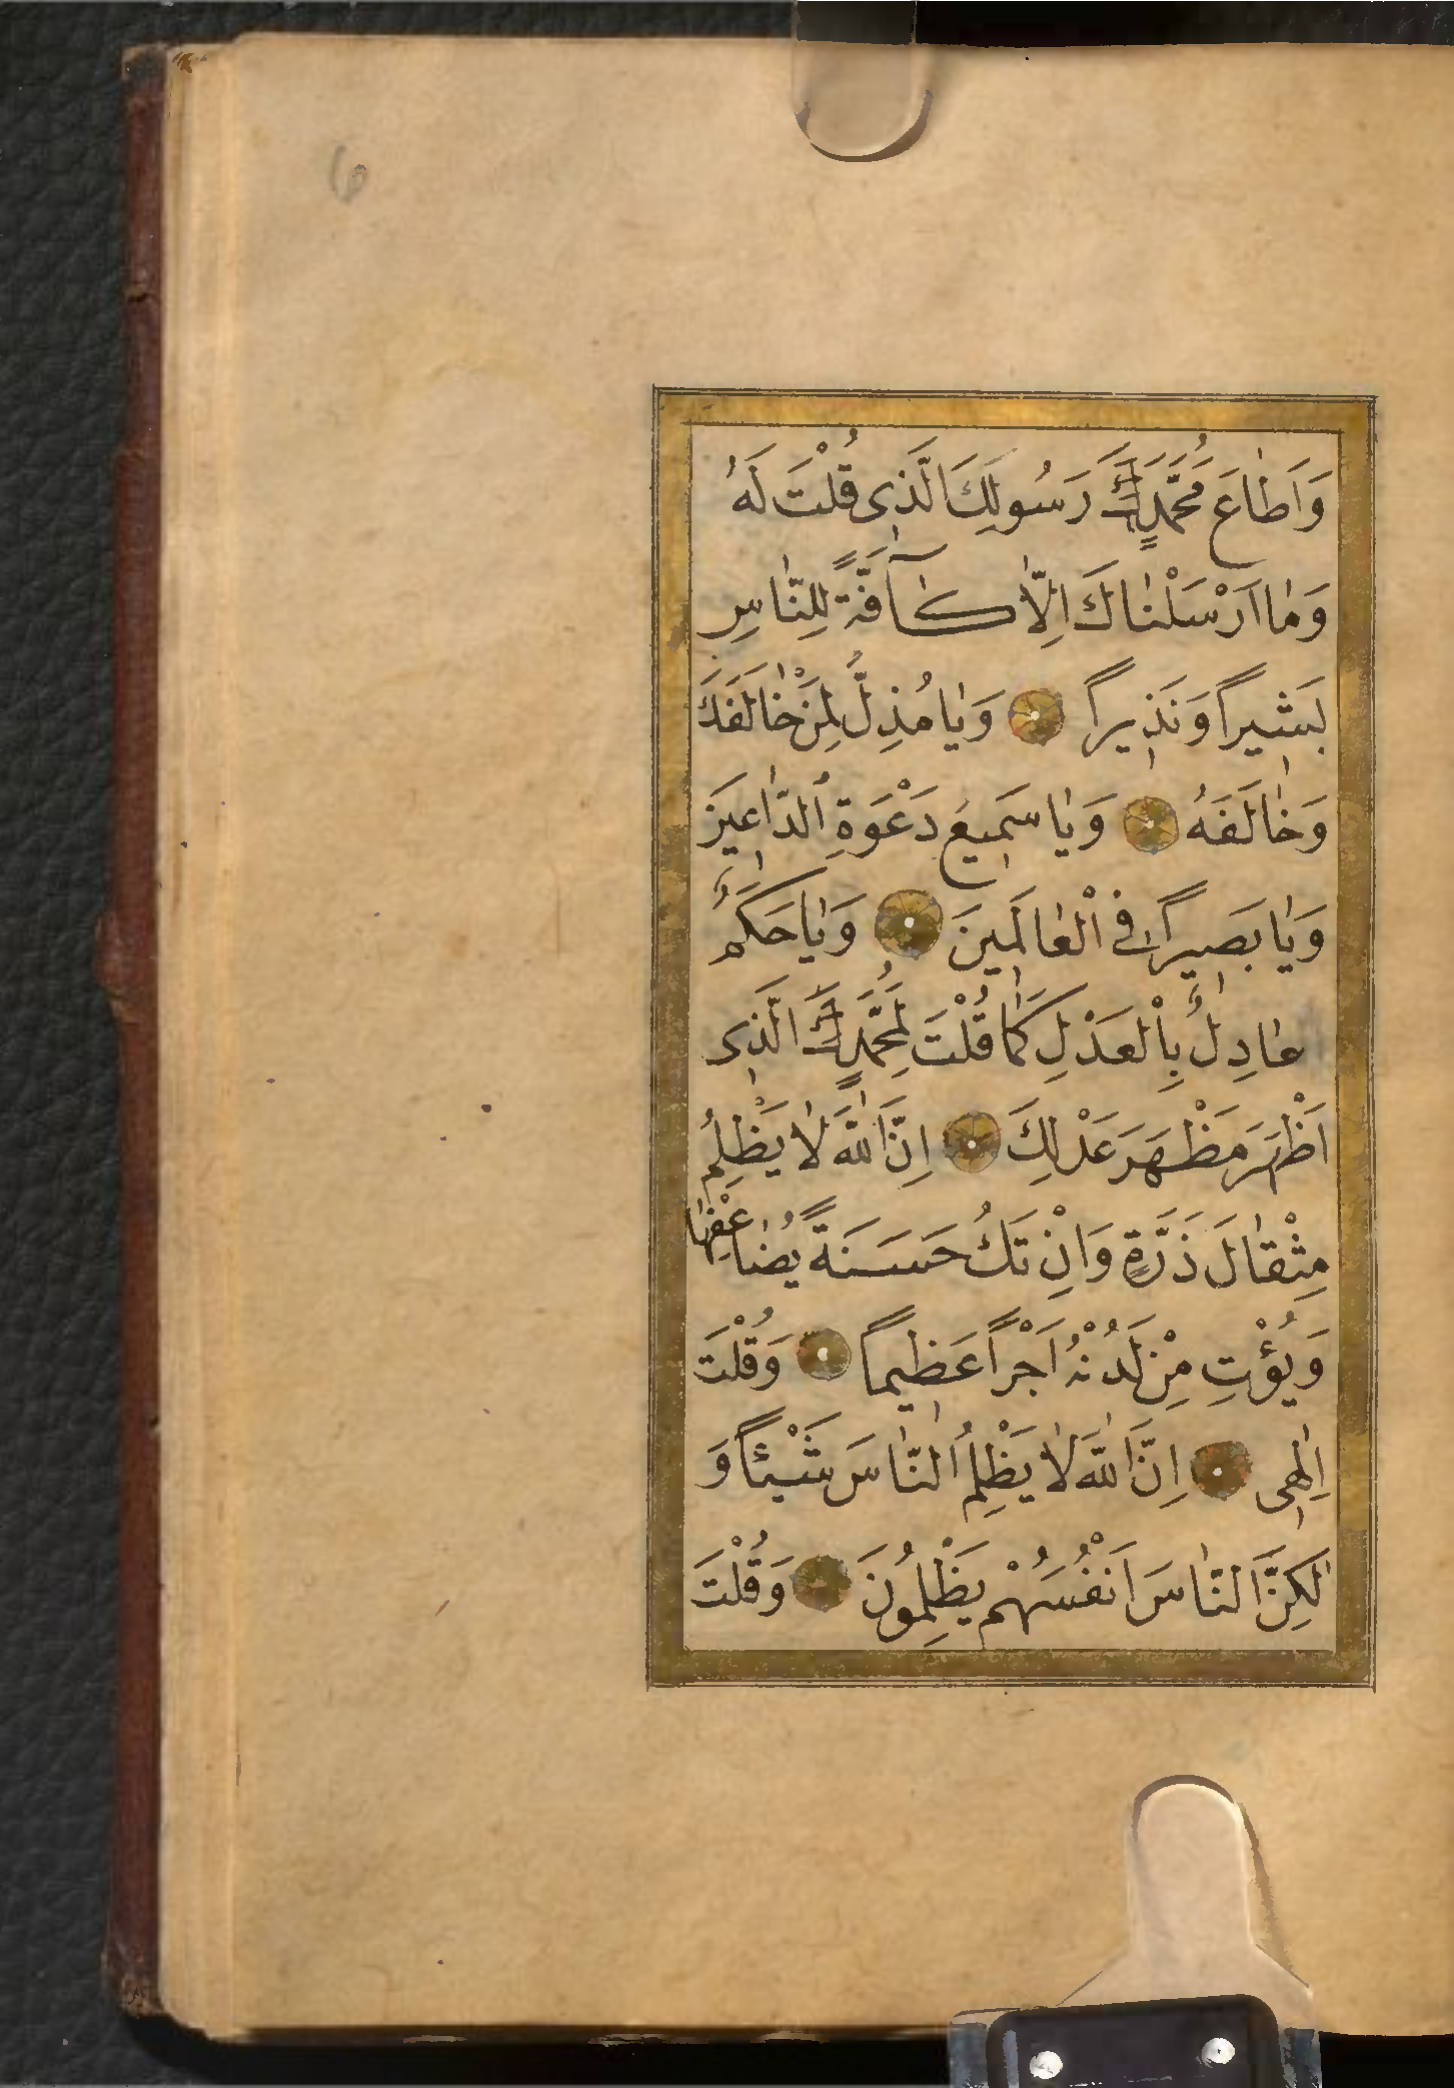 6
وَاَطَاعَ مُحَمَّدٍ رَسُولِكَ الَّذِى قُلْتَ لَهُ
وَمَا اَرْسَلْنَاكَ اِلَّا كَآفَّةً لِلنَّاسِ
بَشِيراً وَنَذِيراً وَيَا مُذِلُّ لِمَنْ خَالَفَكَ
وَخَالَفَهُ وَيَا سَمِيعَ دَعْوَةِ الدَّاعِينَ
وَيَا بَصِيراً فِى الْعَالَمِينَ وَيَا حَكَمُ
عَادِلُ بِالْعَدْلِ كَمَا قُلْتَ لِمُحَمَّدٍ الَّذِى
اَظْهَرَ مَظْهَرَ عَدْلِكَ اِنَّ اللّٰهَ لَا يَظْلِمُ
مِثْقَالَ ذَرَّةٍ وَاِنْ تَكُ حَسَنَةً يُضَاعِفْهَا
وَيُؤْتِ مِنْ لَدُنْهُ اَجْراً عَظِيماً وَقُلْتَ
اِلٰهِى اِنَّ اللّٰهَ لَا يَظْلِمُ النَّاسَ شَيْئاً وَ
لٰكِنَّ النَّاسَ اَنْفُسَهُمْ يَظْلِمُونَ وَقُلْتَ